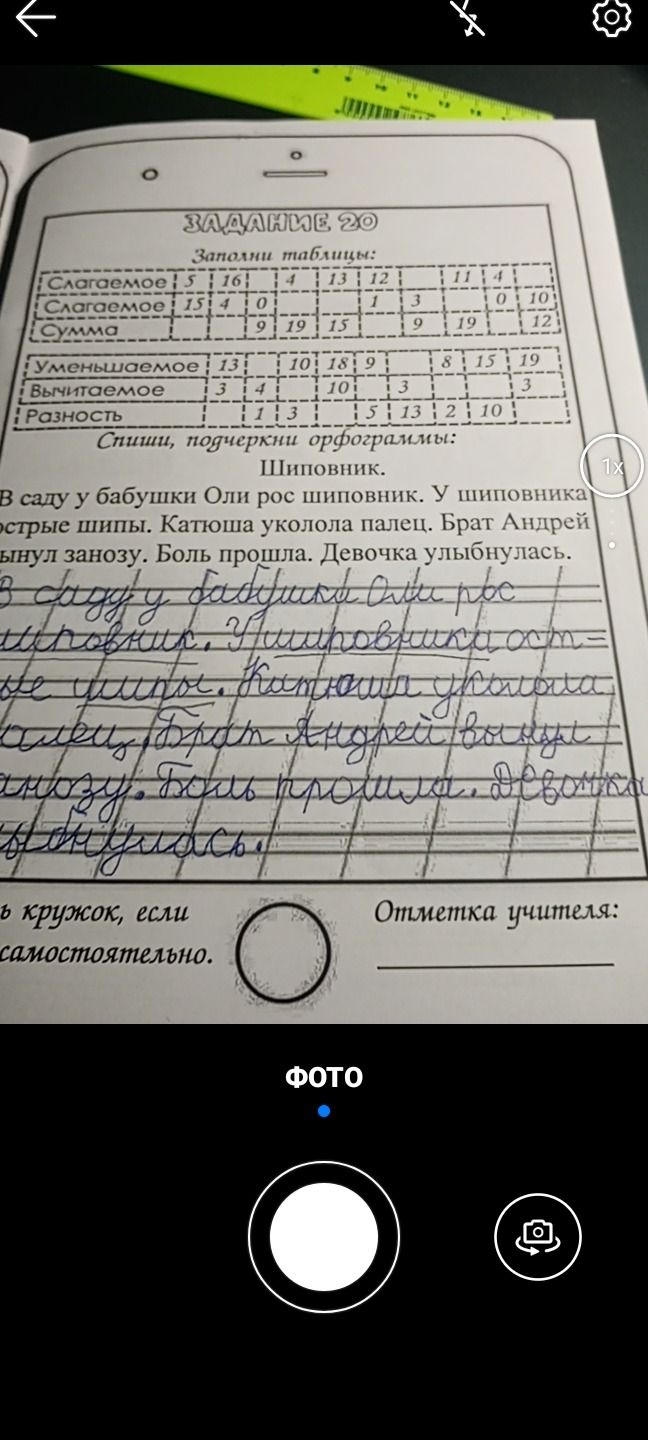 ЗАДАНИЕ 20
Заполни таблицы:
Слагаемое 5 16 4 13 12 11 4
Слагаемое 15 4 0 1 3 0 10
Сумма 9 19 15 9 19 12
Уменьшаемое 13 10 18 9 8 15 19
Вычитаемое 3 4 10 3 3
Разность 1 3 5 13 2 10
Спиши, подчеркни орфограммы:
Шиповник.
В саду у бабушки Оли рос шиповник. У шиповника
острые шипы. Катюша уколола палец. Брат Андрей
ынул занозу. Боль прошла. Девочка улыбнулась.
1x
В саду у бабушки Оли рос
шиповник. У шиповника ост-
ые шипы. Катюша уколола
алец. Брат Андрей вынул
анозу. Боль прошла. Девочка
ыбнулась.
ь кружок, если
самостоятельно.
Отметка учителя:
ФОТО